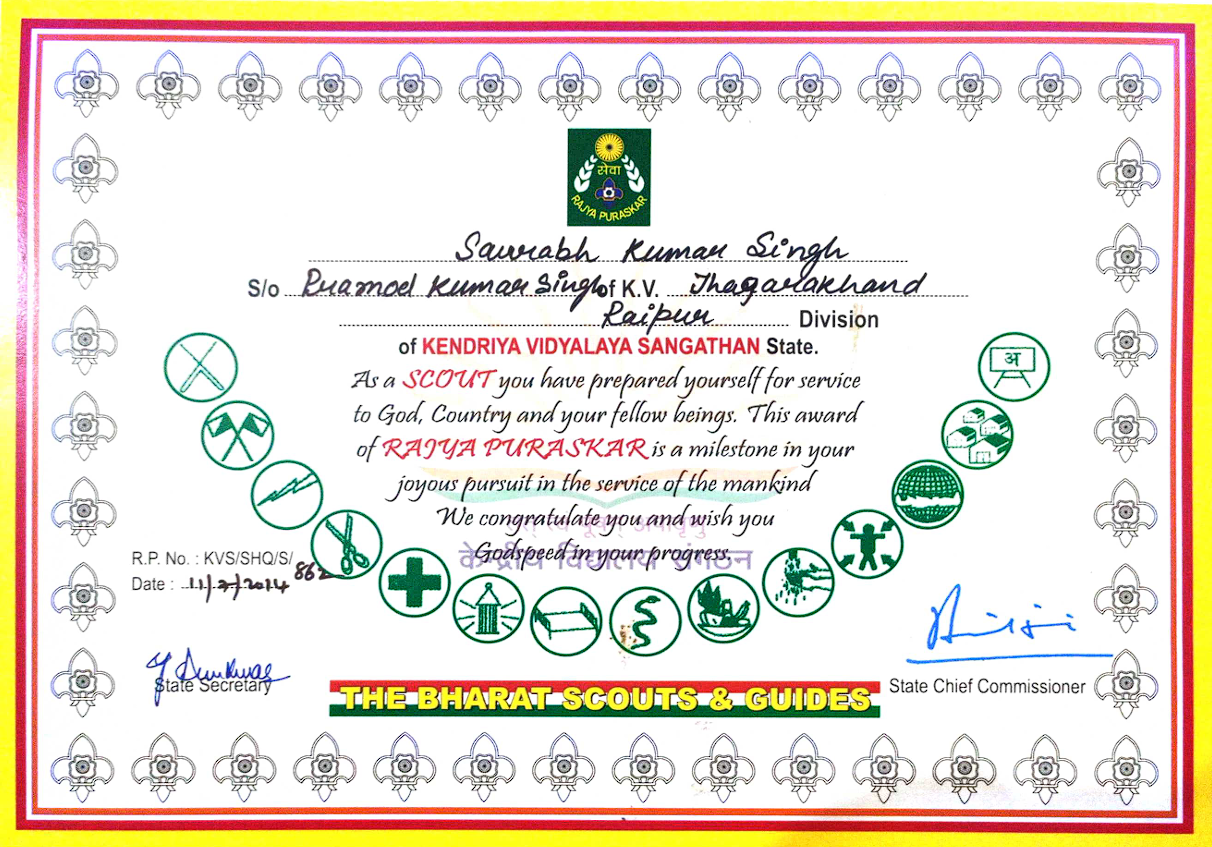 सेवा
RAJYA PURASKAR
Saurabh Kumar Singh
S/o Pramod Kumar Singh of K.V. Jhagarakhand
Raipur Division
of KENDRIYA VIDYALAYA SANGATHAN State.
अ
As a SCOUT you have prepared yourself for service
to God, Country and your fellow beings. This award
of RAJYA PURASKAR is a milestone in your
joyous pursuit in the service of the mankind
We congratulate you and wish you
Godspeed in your progress.
केन्द्रीय विद्यालय संगठन
R.P. No. : KVS/SHQ/S/862
Date : 11/2/2014
State Secretary
THE BHARAT SCOUTS & GUIDES
State Chief Commissioner